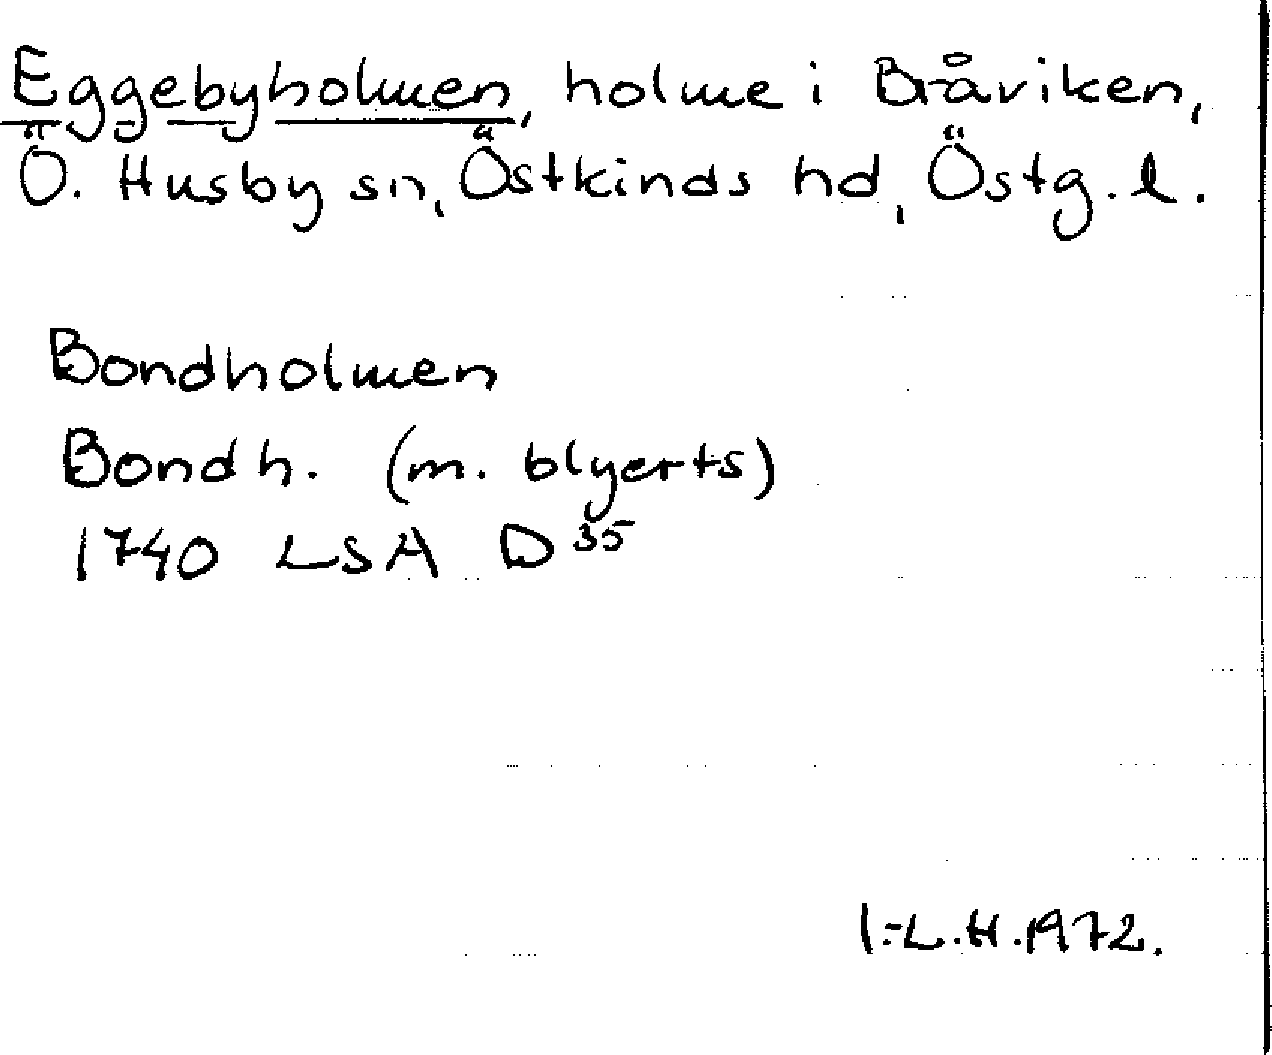 Eggebyholmen, holme i Bråviken,
Ö. Husby sn, Östkinds hd, Östg. l.
Bondholmen
Bondh. (m. blyerts)
1740 LSA D 35
I-L.H.1972.